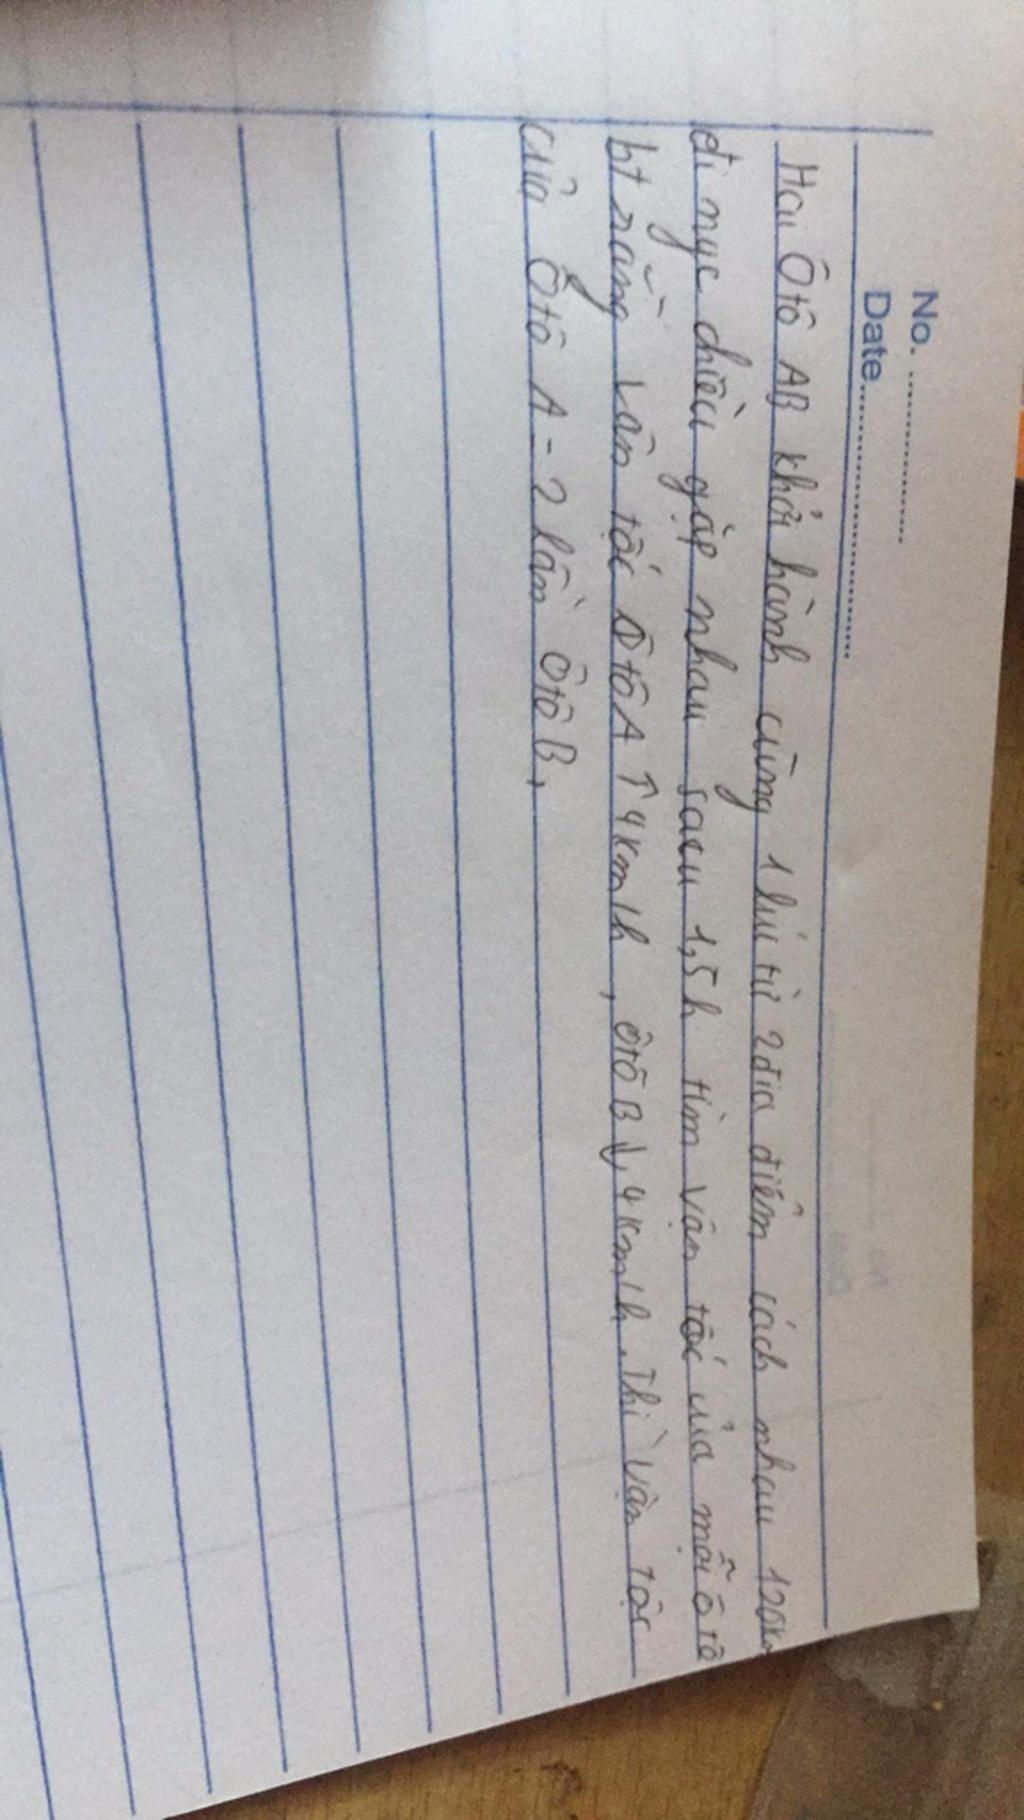 No. ....................
Date.................................
Hai Ôtô AB khởi hành cùng 1 lúc từ 2 địa điểm cách nhau 120km
đi ngc chiều gặp nhau sau 1,5h tìm vận tốc của mỗi ô tô
bt rằng vân tốc Ôtô A ↑ 4km/h, ôtô B ↓ 4km/h. Thì vận tốc
của Ôtô A = 2 lần ôtô B,